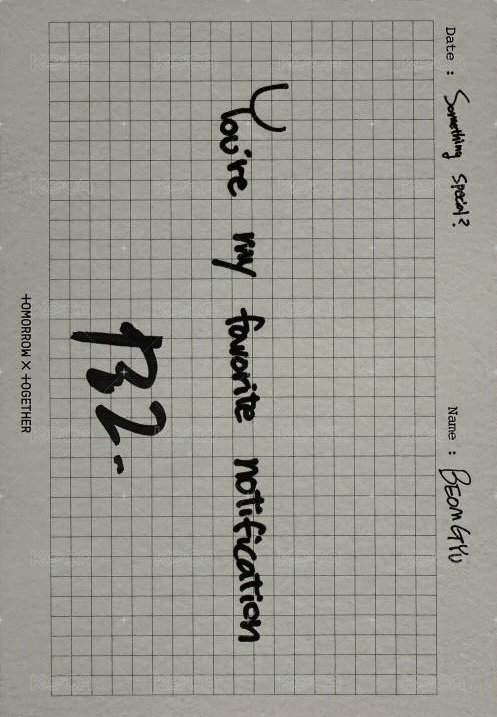 Date : Something special?
Name : BEOMGYU
You're my favorite notification
TOMORROW X TOGETHER